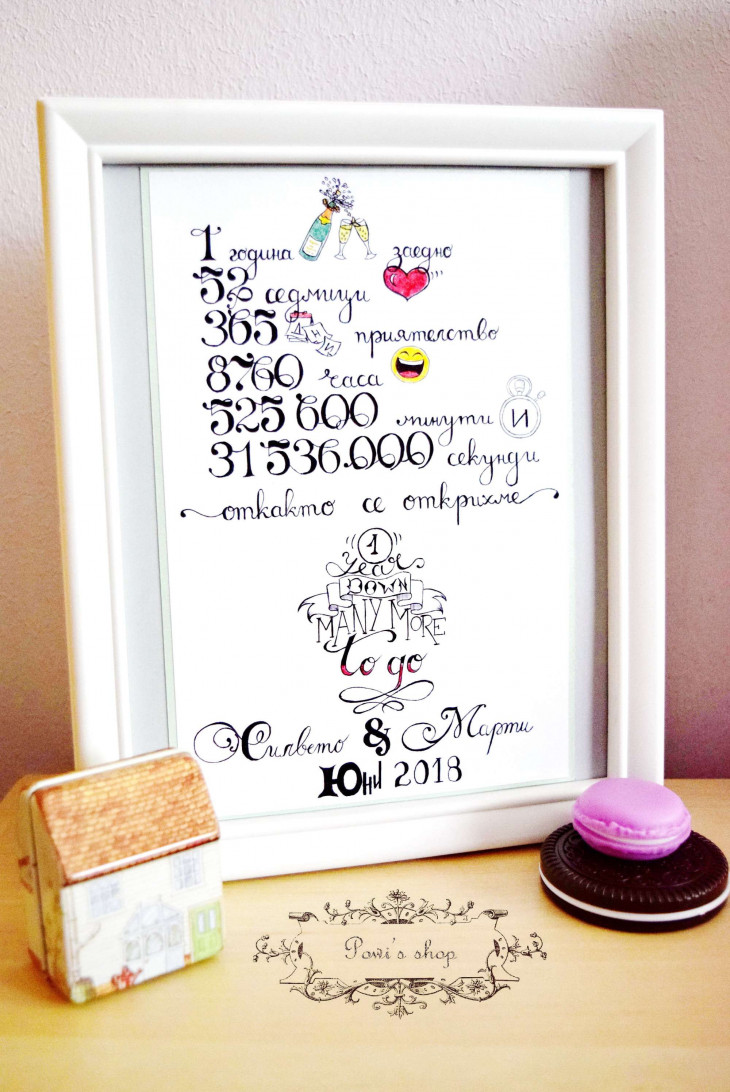 1 година заедно
52 седмици
365 ДНИ приятелство
8760 часа
525 600 минути И
31 536.000 секунди
откакто се открихме
1
Year
DOWN
MANY MORE
to go
Силвето & Марти
Юни 2018
Powi's shop